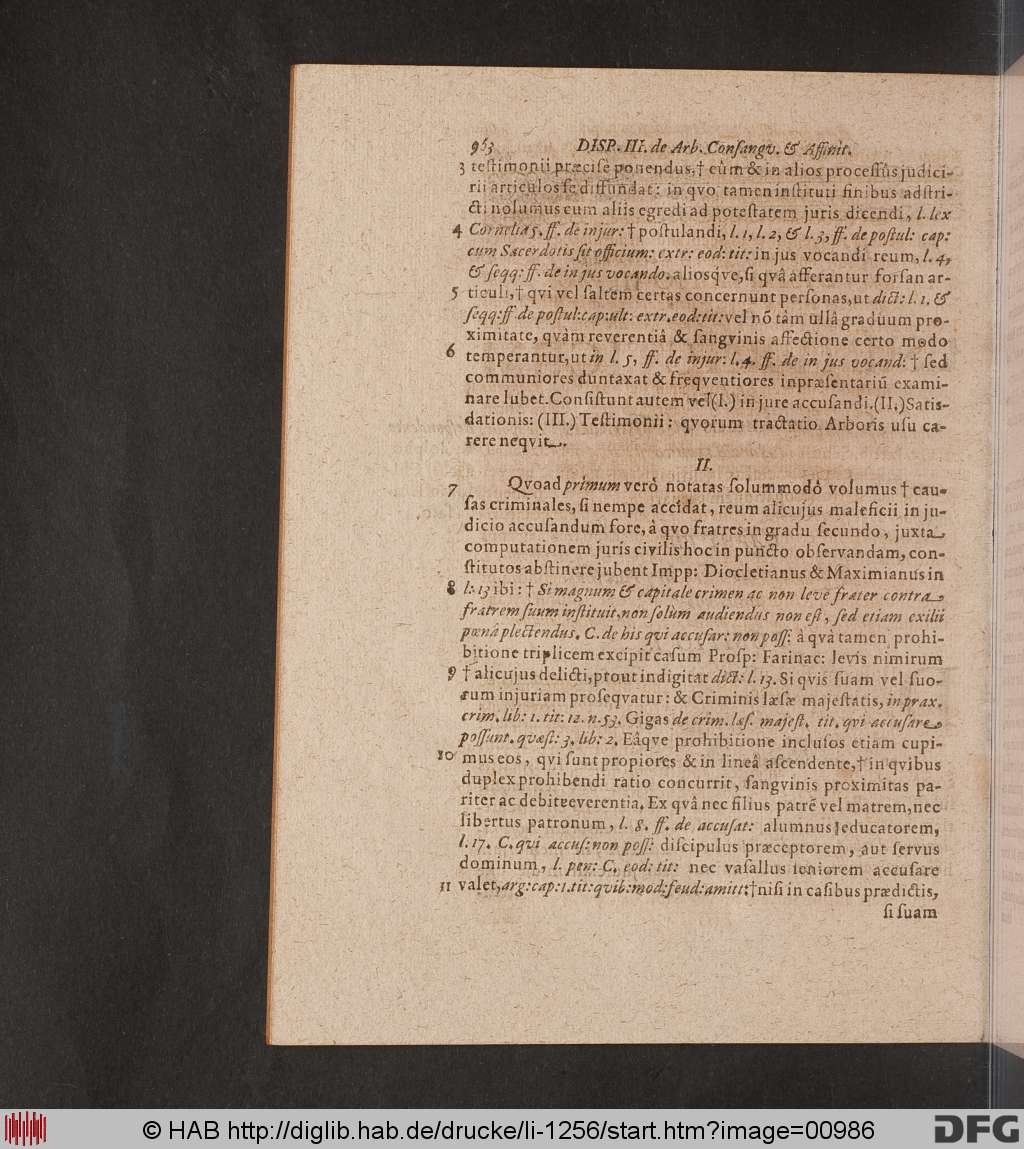 963 DISP. III. de Arb. Consangv. & Affinit.
3 testimonii præcisè ponendus, † cùm & in alios processûs judici-
rii articulos se diffundat: in qvo tamen instituti finibus adstri-
cti nolumus eum aliis egredi ad potestatem juris dicendi, l. lex
4 Cornelia 5. ff. de injur: † postulandi, l. 1, l. 2, & l. 3, ff. de postul: cap:
cum Sacerdotis sit officium: extr: eod: tit: in jus vocandi reum, l. 4,
& seqq: ff. de in jus vocando. aliosqve, si qvâ afferantur forsan ar-
5 ticuli, † qvi vel saltem certas concernunt personas, ut dict: l. 1. &
seqq: ff de postul: cap: ult: extr. eod: tit: vel nõ tàm ullâ graduum pro-
ximitate, qvàm reverentiâ & sangvinis affectione certo modo
6 temperantur, ut in l. 5, ff. de injur: l. 4. ff. de in jus vocand: † sed
communiores duntaxat & freqventiores inpræsentariũ exami-
nare lubet. Consistunt autem vel (I.) in jure accusandi. (II,) Satis-
dationis: (III.) Testimonii: qvorum tractatio Arboris usu ca-
rere neqvit.
II.
7 Qvoad primum verò notatas solummodò volumus † cau-
sas criminales, si nempe accidat, reum alicujus maleficii in ju-
dicio accusandum fore, â qvo fratres in gradu secundo, juxta
computationem juris civilis hoc in puncto observandam, con-
stitutos abstinere jubent Impp: Diocletianus & Maximianus in
8 l: 13 ibi: † Si magnum & capitale crimen ac non leve frater contra
fratrem suum instituit, non solùm audiendus non est, sed etiam exilii
pœnâ plectendus. C. de his qvi accusar: non poss: à qvâ tamen prohi-
bitione triplicem excipit casum Prosp: Farinac: levis nimirum
9 † alicujus delicti, prout indigitat dict: l. 13. Si qvis suam vel suo-
rum injuriam proseqvatur: & Criminis læsæ majestatis, in prax.
crim. lib: 1. tit: 12. n. 53. Gigas de crim. læs. majest. tit. qvi accusare
possunt. qvæst: 3. lib: 2. Eâqve prohibitione inclusos etiam cupi-
10 mus eos, qvi sunt propiores & in lineâ ascendente, † in qvibus
duplex prohibendi ratio concurrit, sangvinis proximitas pa-
riter ac debit reverentia. Ex qvâ nec filius patrẽ vel matrem, nec
libertus patronum, l. 8. ff. de accusat: alumnus educatorem,
l. 17. C. qvi accus: non poss: discipulus præceptorem, aut servus
dominum, l. pen: C. eod: tit: nec vasallus seniorem accusare
11 valet, arg: cap: 1. tit: qvib: mod: feud: amitt: † nisi in casibus prædictis,
si suam
© HAB http://diglib.hab.de/drucke/li-1256/start.htm?image=00986
DFG